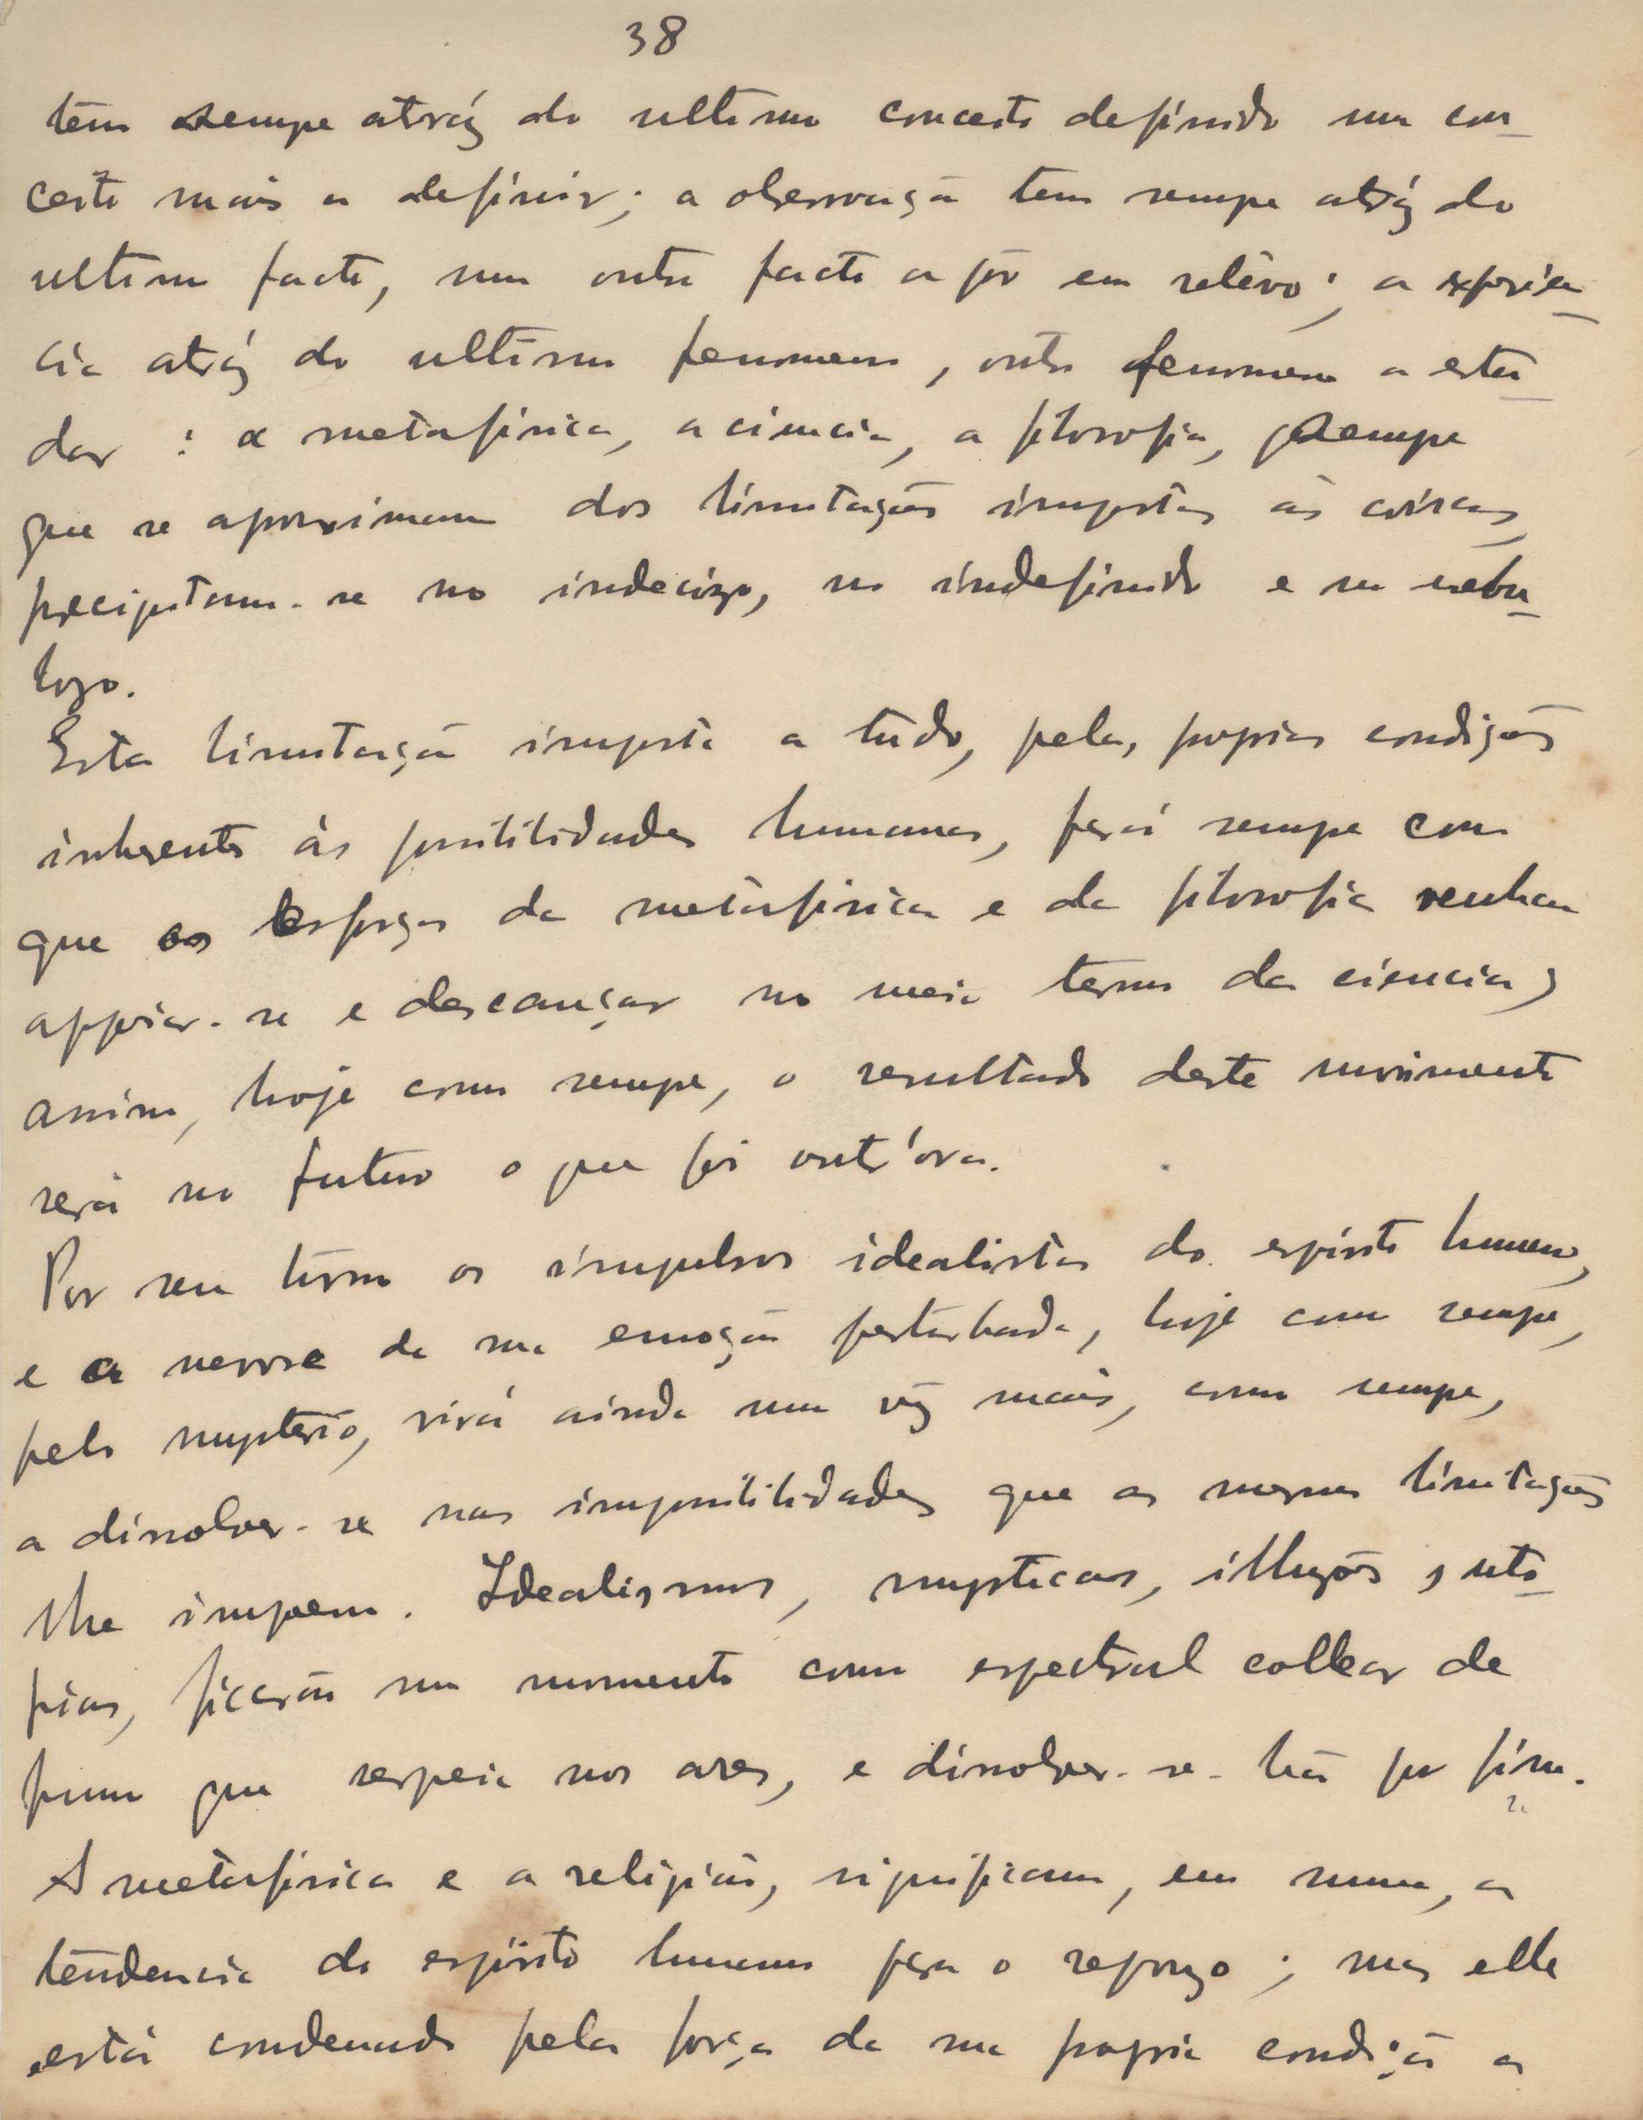 38
tem sempre atráz do ultimo conceito definido um con-
ceito mais a definir; a observação tem sempre atráz do
ultimo facto, um outro facto a pôr em relêvo; a experien-
cia atráz do ultimo fenomeno, outro fenomeno a estu-
dar: a metafisica, a ciencia, a filosofia, sempre
que se aproximam das limitações impostas ás coisas,
precipitam-se no indecizo, no indefinido e no nebu-
lozo.
Esta limitação imposta a tudo, pelas proprias condições
inherentes ás possibilidades humanas, fará sempre com
que os esforços da metafisica e da filosofia venham
appoiar-se e descançar no meio termo da ciencia;
assim, hoje como sempre, o resultado deste movimento
será no futuro o que foi outr'ora.
Por seu turno os impulsos idealistas do espirito humano,
e a nevrose da sua emoção perturbada, hoje como sempre,
pelo mysterio, virá ainda uma vez mais, como sempre,
a dissolver-se nas impossibilidades que as mesmas limitações
lhe impoem. Idealismos, mysticas, illuzões, uto-
pias, ficarão um momento como espectral collear de
fumo que serpeia nos ares, e dissolver-se-hão por fim.
A metafisica e a religião, significam, em summa, a
tendencia do espirito humano para o repouzo; mas elle
está condemnado pela força da sua propria condição a